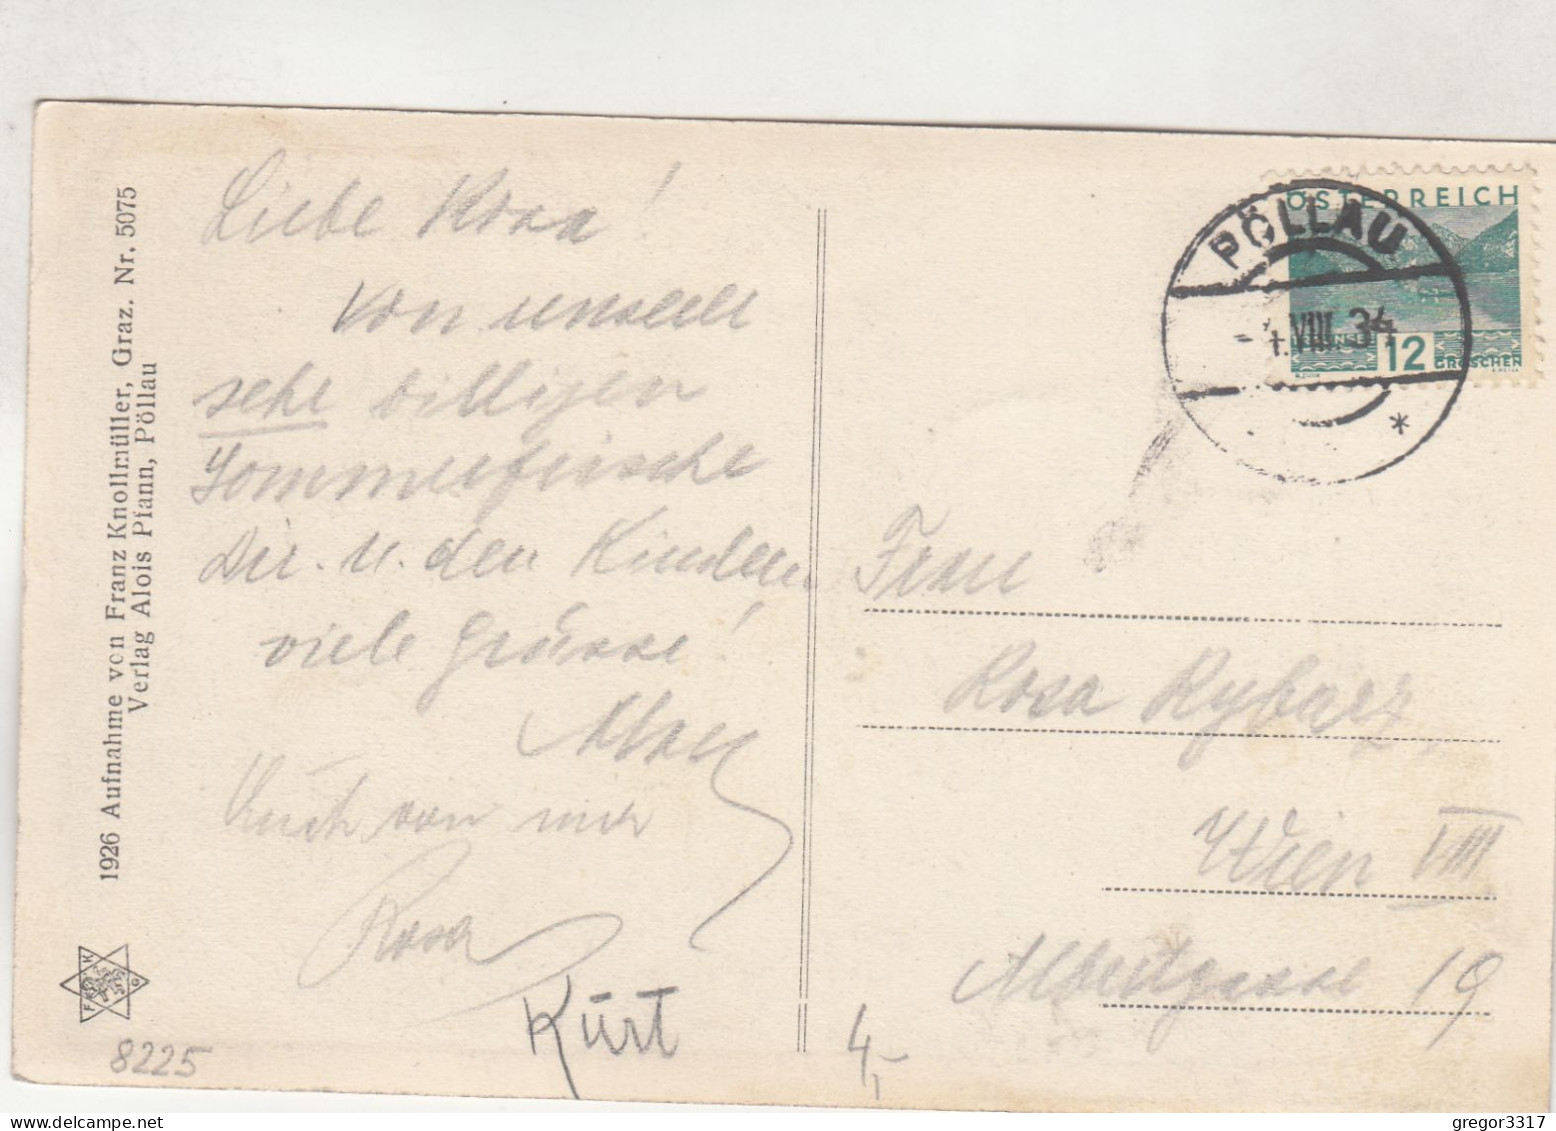 1926 Aufnahme von Franz Knollmüller, Graz. Nr. 5075
Verlag Alois Pfann, Pöllau
F K G
8225
Liebe Rosa!
Von unserer
sehr billigen
Sommerfrische
Dir u. den Kindern
viele Grüsse!
Auch von mir
Rosa
Kurt
4,-
ÖSTERREICH
12
GROSCHEN
PÖLLAU
VIII. 34
*
Frau
Rosa Rybarz,
Wien VIII
Albertgasse 19
gregor3317